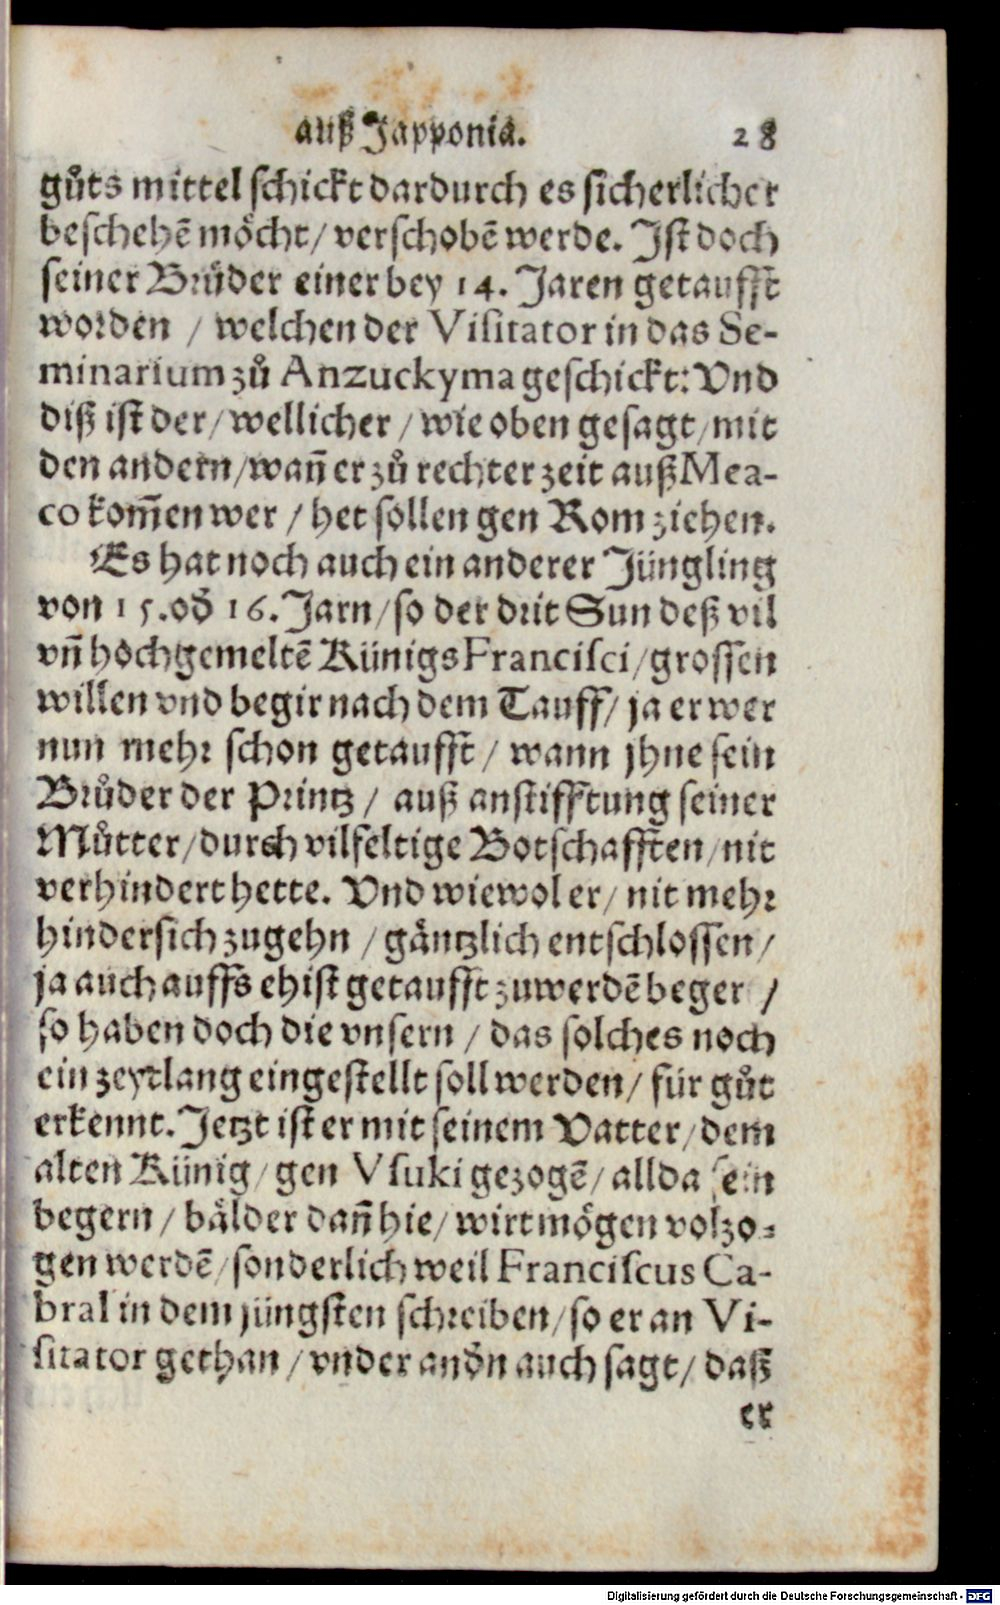 auß Japponia. 28
gůts mittel schickt dardurch es sicherlicher
beschehẽ möcht/ verschobẽ werde. Ist doch
seiner Brůder einer bey 14. Jaren getaufft
worden / welchen der Visitator in das Se-
minarium zů Anzuckyma geschickt: Vnd
diß ist der/ wellicher / wie oben gesagt/ mit
den andern/ wañ er zů rechter zeit auß Mea-
co kom̃en wer / het sollen gen Rom ziehen.
Es hat noch auch ein anderer Jüngling
von 15. od̃ 16. Jarn/ so der drit Sun deß vil
vñ hochgemeltẽ Künigs Francisci/ grossen
willen vnd begir nach dem Tauff/ ja er wer
nun mehr schon getaufft / wann jhne sein
Brůder der Printz / auß anstifftung seiner
Můtter/ durch vilfeltige Botschafften/ nit
verhindert hette. Vnd wiewol er/ nit mehr
hindersich zugehn / gäntzlich entschlossen/
ja auch auffs ehist getaufft zuwerdẽ beger /
so haben doch die vnsern / das solches noch
ein zeytlang eingestellt soll werden/ für gůt
erkennt. Jetzt ist er mit seinem Vatter/ dem
alten Künig/ gen Vsuki gezogẽ/ allda sein
begern / bälder dañ hie/ wirt mögen volzo-
gen werdẽ/ sonderlich weil Franciscus Ca-
bral in dem jüngsten schreiben/ so er an Vi-
sitator gethan / vnder and̃n auch sagt/ daß
er
Digitalisierung gefördert durch die Deutsche Forschungsgemeinschaft - DFG